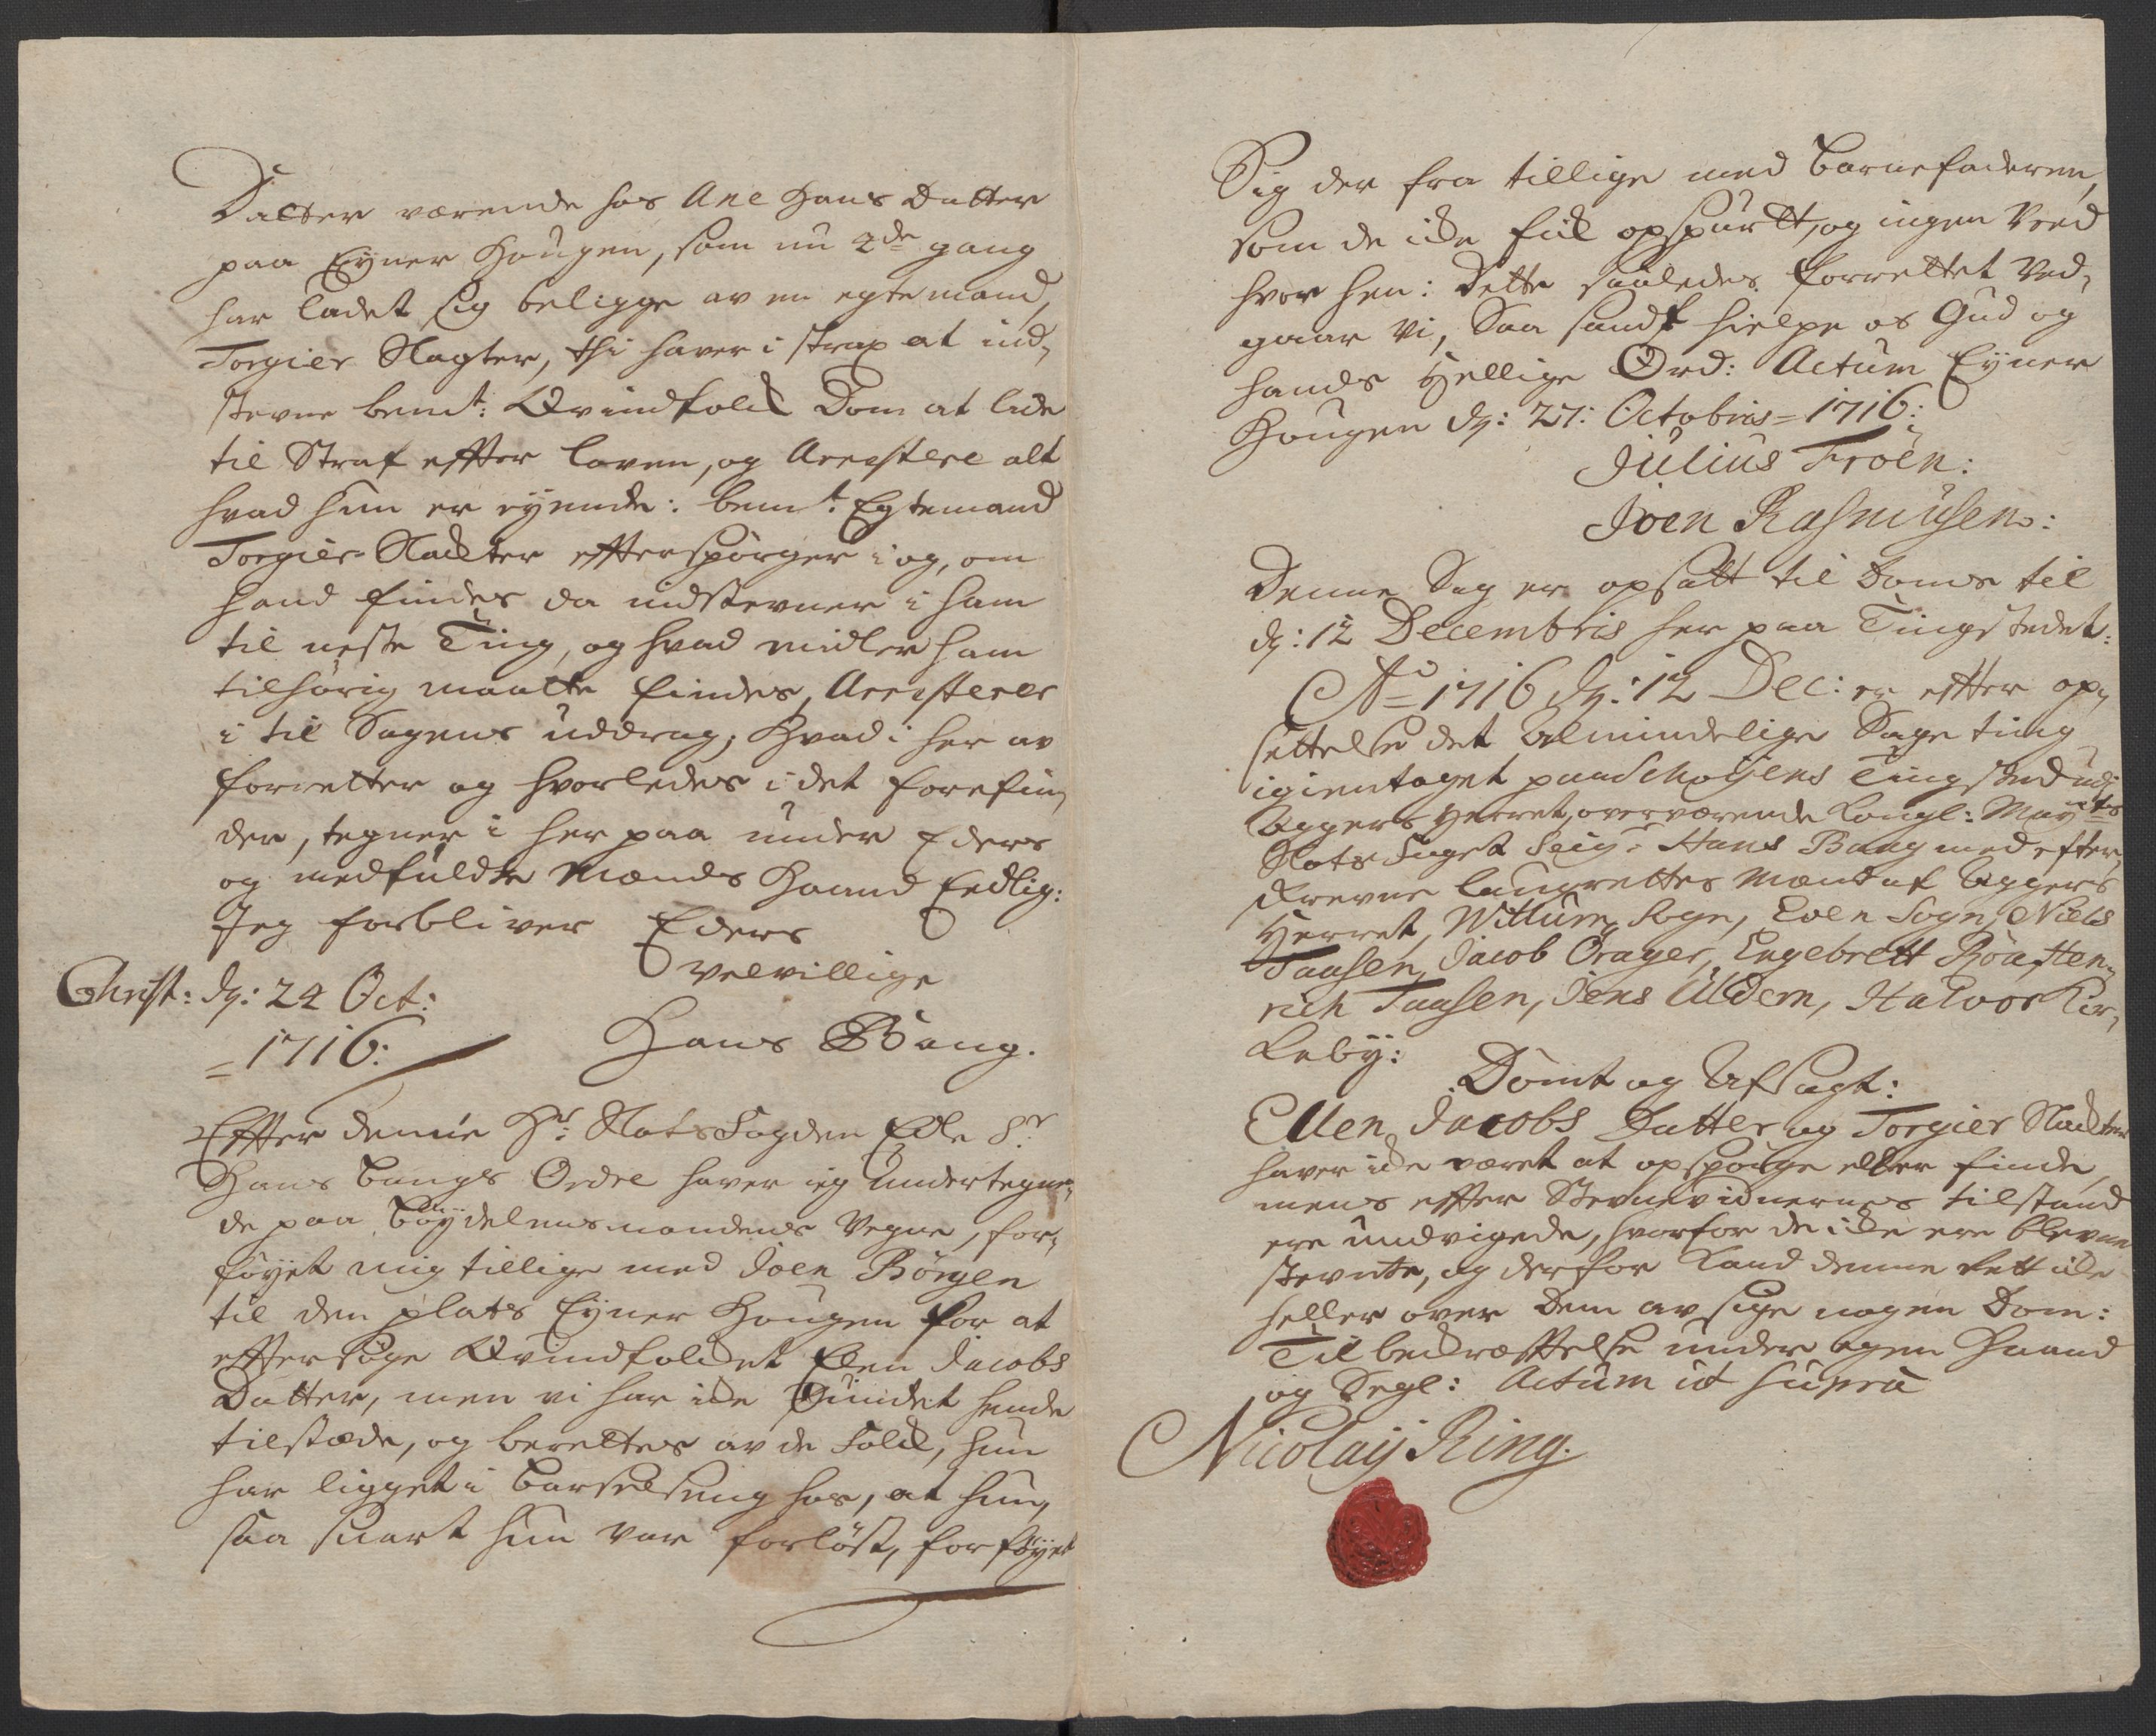 Datter værende hos Ane Hans Datter
paa Eyner Hougen, som nu 2de gang
har ladet sig beligge av en egte mand,
Torgier Slagter, thi haver i strax at ind,
stevne bemt: Qvindfolk Dom at lide
til Straf effter loven, og Arrestere alt
hvad hun er eyende: bemt: Egtemand
Torgier Slackter effterspörger i og, om
hand findes da indstevner i ham
til neste Ting, og hvad midler ham
tilhörig maatte findes, Arresterer
i til Sagens uddrag; Hvad i her av
forretter og hvorledes i det forefin,
der, tegner i her paa under Eders
og medfuldte Mænds Haand Eedlig:
Jeg forbliver Eders
velvillige
Christ: dn: 24 Oct:
=1716: Hans Bang.
Effter denne Hr: SlotsFogden Edle Sr.
Hans Bangs Ordre haver ieg undertegne,
de paa Böydelensmandens Vegne, for,
föyet mig tillige med Joen Börgen
til den plats Eyner Hougen for at
effter söge Qvindfolcket Elen Jacobs
Datter, men vi har icke fundet hende
tilstæde, og berettes av de Folck, hun
har ligget i Barselseng hos, at hun,
saa snart hun var forlöst, forföyet
Sig der fra tillige med Barnefaderen,
som de icke fick opspurtt, og ingen Veed
hvor hen: Dette saaledes forrettet Ved,
gaar Vi, Saa sandt hielpe os Gud og
hands Hellige Ord: Actum Eyner
Hougen dn: 27: Octobris = 1716:
Julius Froen:
Joen Rasmusen:
Denne Sag er opsatt til Doms til
dn: 12 Decembris her paa Tingstedet:
Ao= 1716 dn: 12 Dec: er effter op,
settelse det almindelige Sage ting
igientaget paa Schoyens Tingsted udj
Aggers Herret, overværende Kongl: Mayts
Slots Foget Seigr Hans Bang med efter,
skrevne laugrettes Mænd af Aggers
Herret, Wittum Sogn, Even Sogn, Niels
Taasen, Jacob Örager, Engebrett Röa, Hen,
rich Taasen, Jens Uldern, Halvor Kir,
keby:
Dömt og Afsagt:
Ellen Jacobs Datter og Torgier Slackter
haver icke været at opspörge eller finde,
mens effter Stevnevidnernes tilstand
ere undvigede, hvorfor de icke ere blevne
stevnte, og derfor kand denne rett icke
heller over Dem avsige nogen Dom:
Til bekræfftelse under egen Haand
og Segl: Actum ut supra
Nicolaÿ Ring.